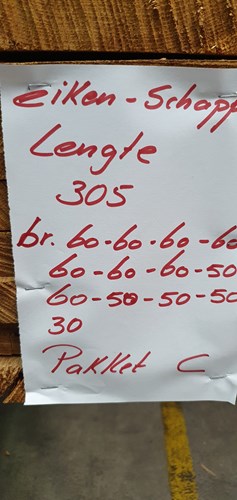 eiken - Schapp
Lengte
305
br. 60 - 60 - 60 - 60
60 - 60 - 60 - 50
60 - 50 - 50 - 50
30
Pakket C